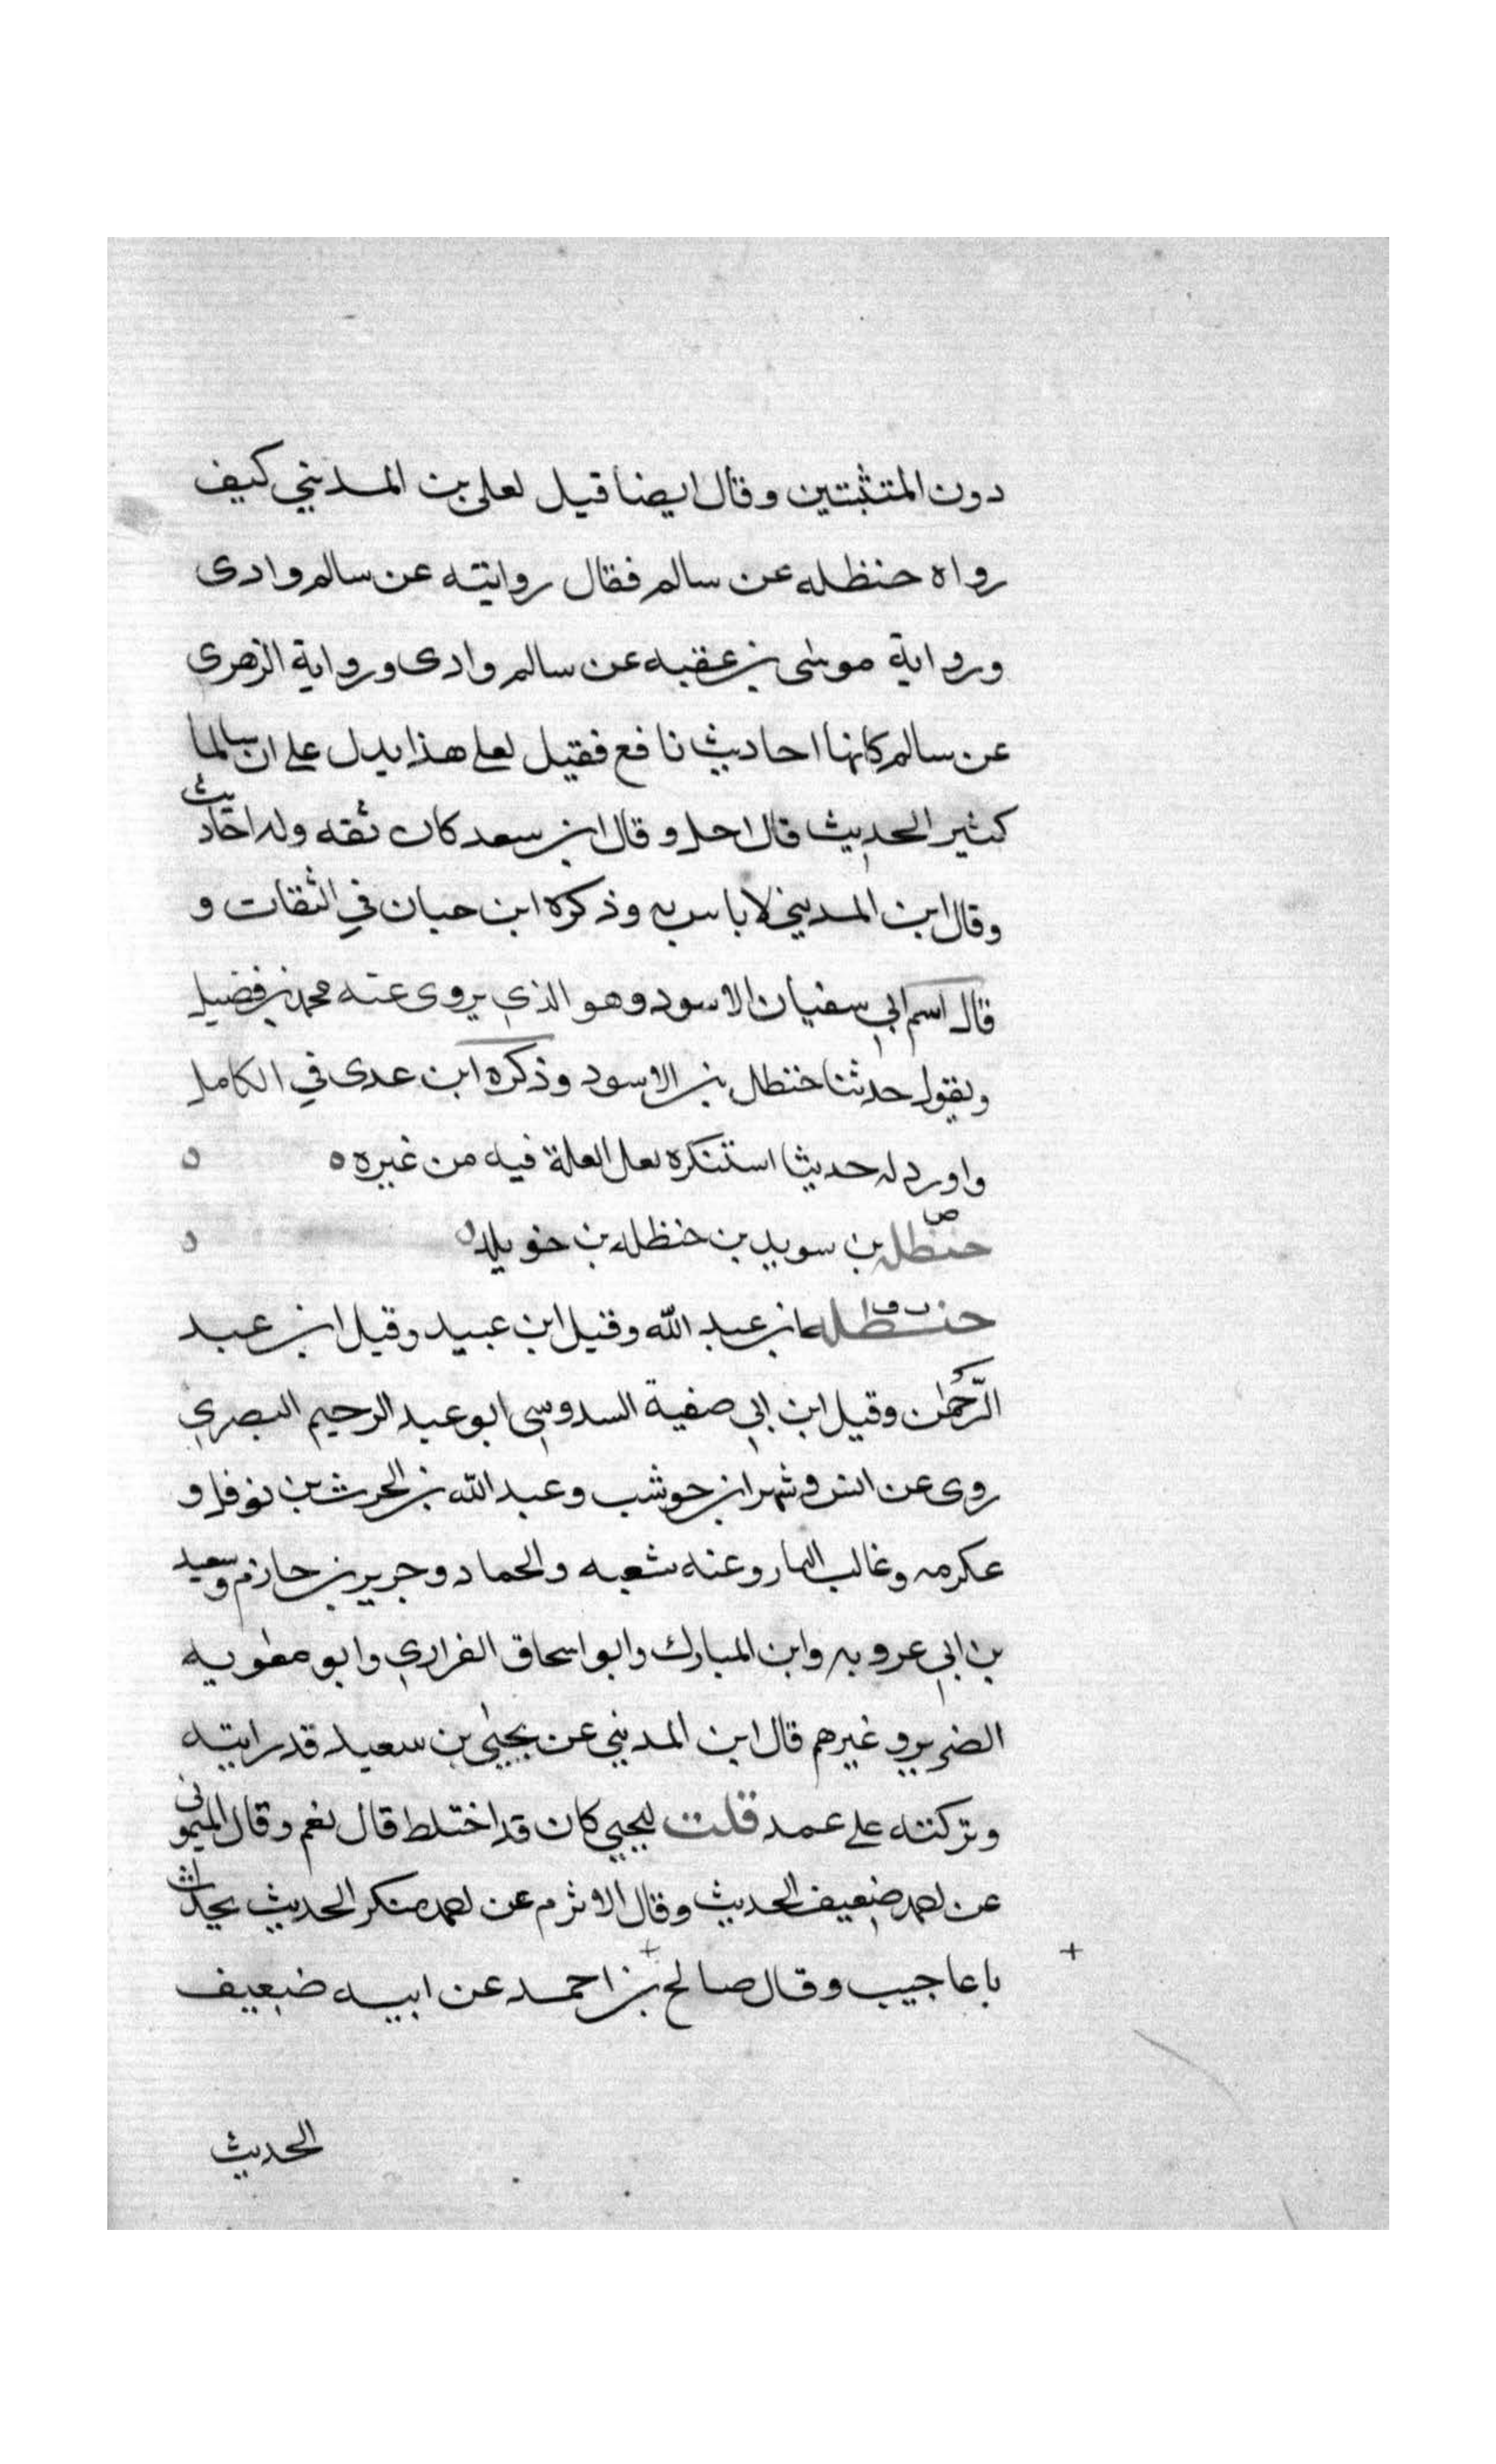 دون المتثبتين وقال ايضا قيل لعلى بن المديني كيف
رواه حنظله عن سالم فقال روايته عن سالم وادى
ورواية موسى بن عقبه عن سالم وادى ورواية الزهرى
عن سالم كانها احاديث نافع فقيل لعلى هذا يدل على ان سالما
كثير الحديث قال اجل وقال ابن سعد كان ثقه وله احاديث
وقال ابن المديني لا باس به وذكره ابن حبان في الثقات و
قال اسم ابي سفيان الاسود وهو الذي يروى عنه محمد بن فضيل
ويقول حدثنا حنظله بن الاسود وذكره ابن عدى في الكامل
واورد له حديثا استنكره لعل العلة فيه من غيره ه ه
ص
حنظله بن سويد بن حنظله بن خويلد ه ه
ت ق
حنظله ابن عبد الله وقيل ابن عبيد وقيل ابن عبد
الرّحمٰن وقيل ابن ابي صفية السدوسي ابو عبد الرحيم البصري
روى عن انس وشهر ابن حوشب وعبد الله بن الحرث بن نوفل و
عكرمه وغالب التمار وعنه شعبه والحماد وجرير بن حازم وسعيد
بن ابي عروبه وابن المبارك وابو اسحاق الفزاري وابو معٰويه
الضرير وغيرهم قال ابن المديني عن يحيى بن سعيد قد رايته
وتركته على عمد قلت ليحيى كان قد اختلط قال نعم وقال الميمونى
عن احمد ضعيف الحديث وقال الاثرم عن احمد منكر الحديث يحدث
باعاجيب وقال صالح بن احمد عن ابيه ضعيف
الحديث